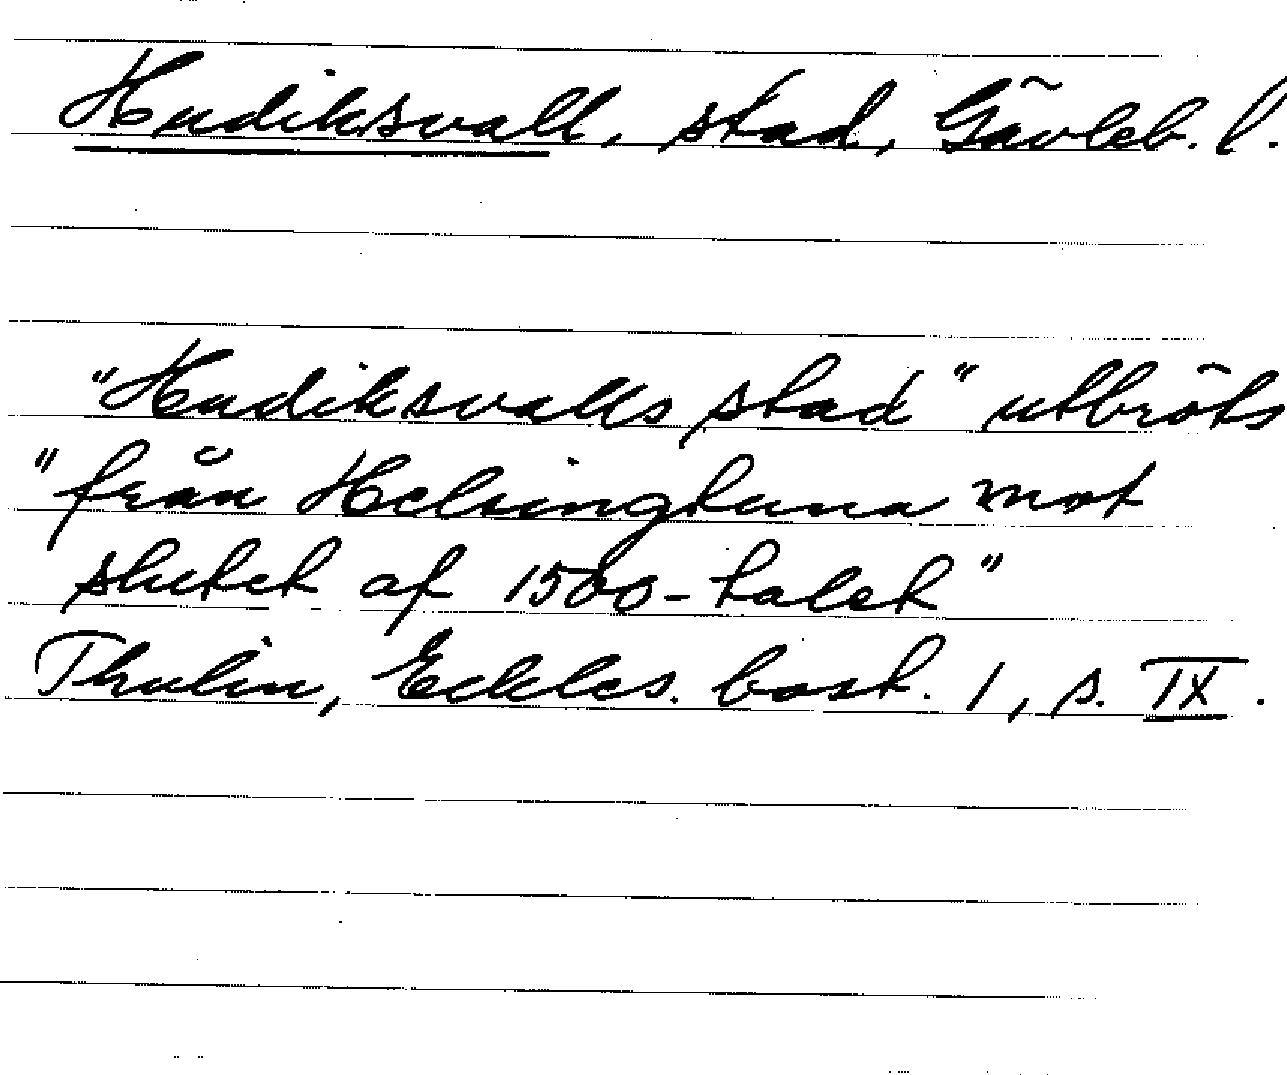 Hudiksvall, stad, Gävleb. l.
"Hudiksvalls stad" utbröts
"från Helsingtuna mot
slutet af 1500-talet"
Thulin, Eckles. bost. 1, s. IX.